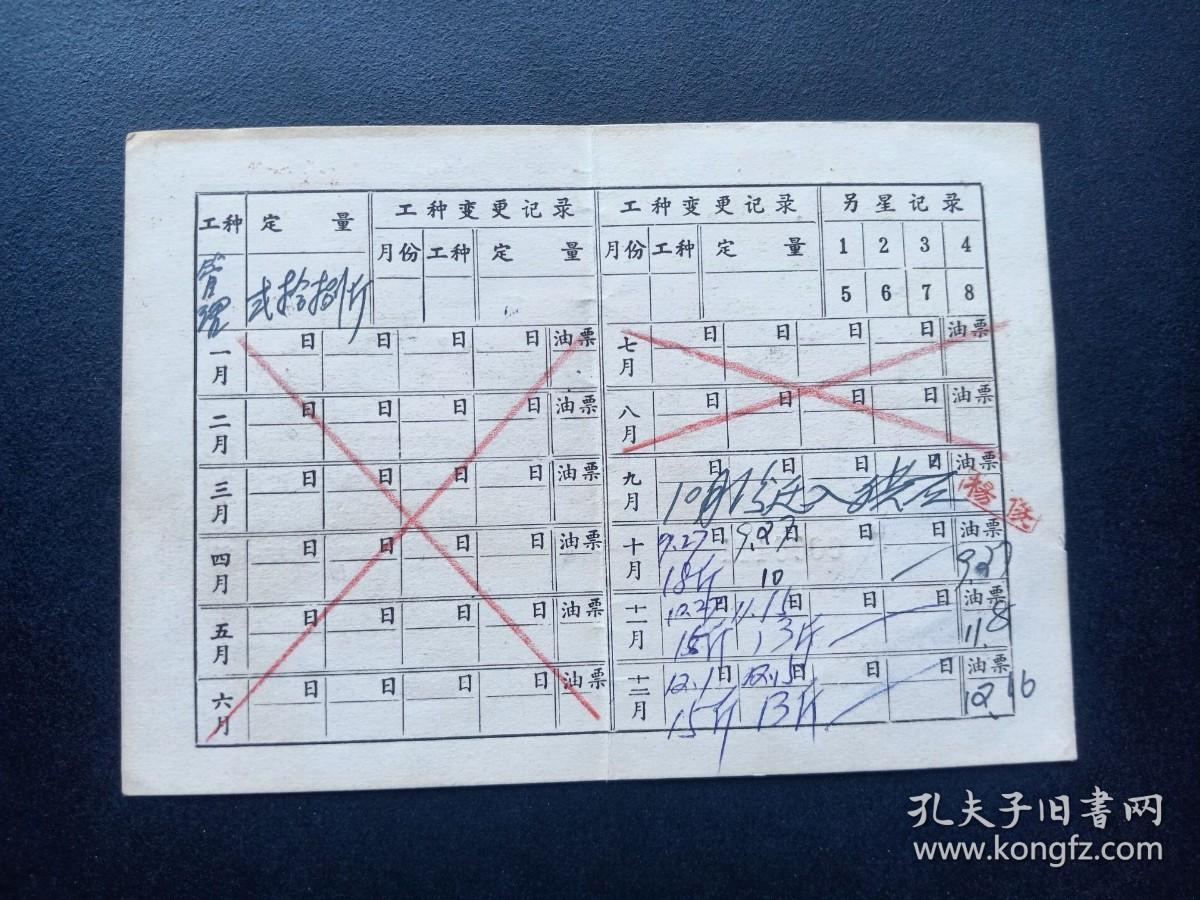 工种 定 量 工种变更记录 工种变更记录 另星记录
月份 工种 定 量 月份 工种 定 量 1 2 3 4
管理 弍拾捌斤 5 6 7 8
一月 日 日 日 日 油票 七月 日 日 日 日 油票
二月 日 日 日 日 油票 八月 日 日 日 日 油票
三月 日 日 日 日 油票 九月 日 日 日 日 油票
10月 迁入
四月 日 日 日 日 油票 十月 9.27日 9.27日 日 日 油票
18斤 10 9.27
五月 日 日 日 日 油票 十一月 日 11.15日 日 日 油票
15斤 13斤 11.8
六月 日 日 日 日 油票 十二月 12.1日 12.15日 日 日 油票
15斤 13斤 12.16
孔夫子旧书网
www.kongfz.com